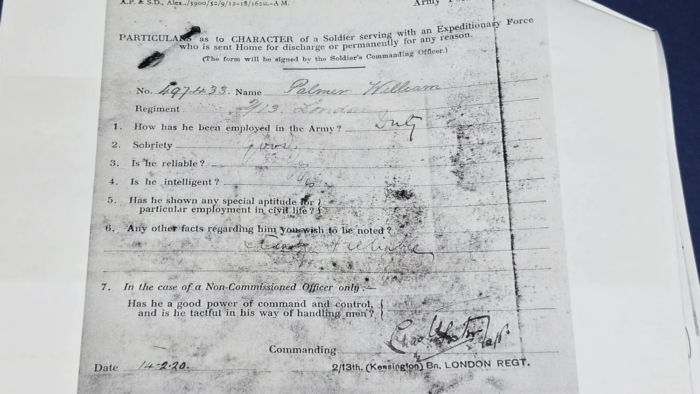 A.P. & S.D., Alex./5900/32/9/12-18/1621.-A.M. Army
PARTICULARS as to CHARACTER of a Soldier serving with an Expeditionary Force
who is sent Home for discharge or permanently for any reason.
(The form will be signed by the Soldier's Commanding Officer.)
No. 497433. Name Palmer William
Regiment 2/13. London
1. How has he been employed in the Army? Duty
2. Sobriety Good
3. Is he reliable? Yes
4. Is he intelligent? Yes
5. Has he shown any special aptitude for
particular employment in civil life?
6. Any other facts regarding him you wish to be noted?
7. In the case of a Non-Commissioned Officer only :—
Has he a good power of command and control,
and is he tactful in his way of handling men?
Commanding
Date 14-2-20. 2/13th. (Kensington) Bn. LONDON REGT.